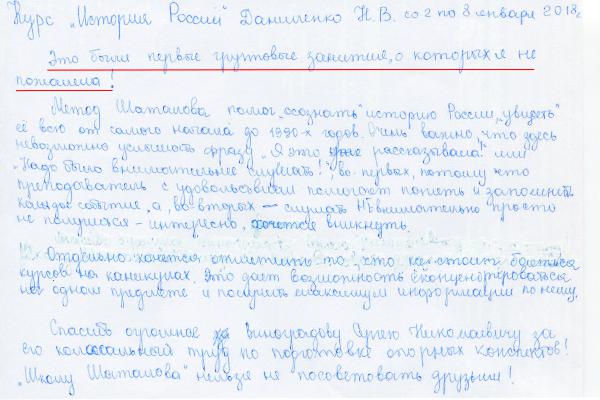 Курс "История России" Даниленко Н.В. со 2 по 8 января 2018г.
Это были первые групповые занятия, о которых я не
пожалела!
Метод Шаталова помог "осознать" историю России, "увидеть"
её всю от самого начала до 1990-х годов. Очень важно, что здесь
невозможно услышать фразу "Я это уже рассказывала!" или
"Надо было внимательнее слушать!": во-первых, потому что
преподаватель с удовольствием помогает понять и запомнить
каждое событие, а, во-вторых — слушать НЕвнимательно просто
не получится – интересно, хочется вникнуть.
Отдельно хочется отметить то, что не стоит бояться
курсов на каникулах. Это даёт возможность сконцентрироваться
на одном предмете и получить максимум информации по нему.
Спасибо огромное Виноградову Сергею Николаевичу за
его колоссальный труд по подготовке опорных конспектов!
"Школу Шаталова" нельзя не посоветовать друзьям!